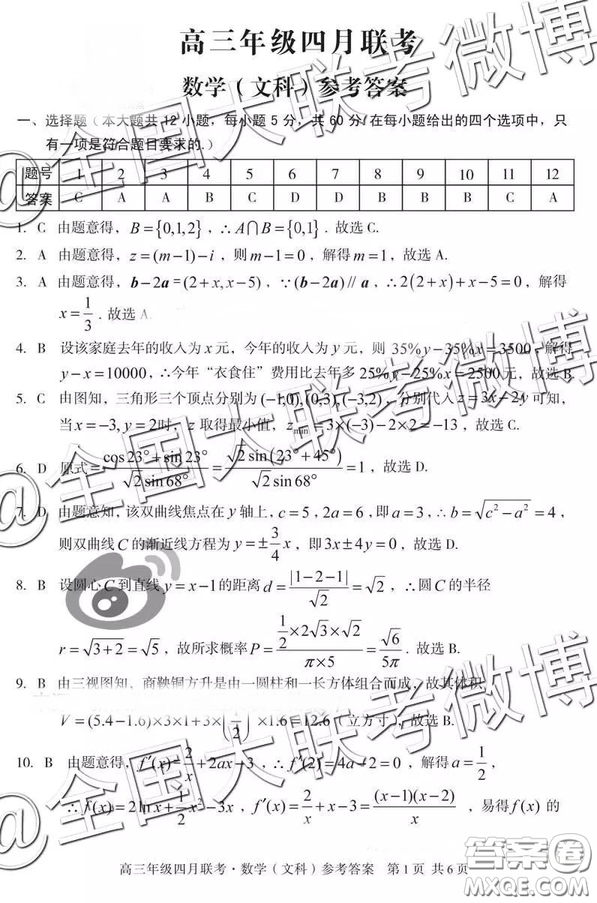 高三年级四月联考
数学（文科）参考答案
一、选择题（本大题共12小题，每小题5分，共60分在每小题给出的四个选项中，只
有一项是符合题目要求的.）
题号 1 2 3 4 5 6 7 8 9 10 11 12
答案 C A A B C D D B B B C A
1. C 由题意得，B={0,1,2}，∴A∩B={0,1}. 故选C.
2. A 由题意得，z=(m−1)−i，则m−1=0，解得m=1，故选A.
3. A 由题意得，b−2a=(2+x,x−5)，∵(b−2a)//a，∴2(2+x)+x−5=0，解得
x=1/3. 故选A.
4. B 设该家庭去年的收入为x元，今年的收入为y元，则 35%y−35%x=3500，解得
y−x=10000，∴今年“衣食住”费用比去年多25%y−25%x=2500元，故选B.
5. C 由图知，三角形三个顶点分别为(−1,0),(0,3),(−3,2)，分别代入z=3x−2y可知，
当x=−3,y=2时，z取得最小值，zmin=3×(−3)−2×2=−13，故选C.
6. D 原式=(cos23°+sin23°)/(√2sin68°)=(√2sin(23°+45°))/(√2sin68°)=1，故选D.
7. D 由题意知，该双曲线焦点在y轴上，c=5，2a=6，即a=3，∴b=√(c²−a²)=4，
则双曲线C的渐近线方程为y=±3/4x，即3x±4y=0，故选D.
8. B 设圆心C到直线y=x−1的距离d=|1−2−1|/√2=√2，∴圆C的半径
r=√(3+2)=√5，故所求概率P=(1/2×2√3×√2)/(π×5)=√6/5π. 故选B.
9. B 由三视图知，商鞅铜方升是由一圆柱和一长方体组合而成，故其体积
V=(5.4−1.6)×3×1+3×(1/2)²×1.6=12.6（立方寸），故选B.
10. B 由题意得，f′(x)=2/x+2ax−3，∴f′(2)=4a−2=0，解得a=1/2，
∴f(x)=2lnx+1/2x²−3x，f′(x)=2/x+x−3=(x−1)(x−2)/x，易得f(x)的
高三年级四月联考·数学（文科）参考答案 第1页 共6页
@全国大联考微博
@全国大联考微博
@全国大联考微博
答案圈
MXQE.COM